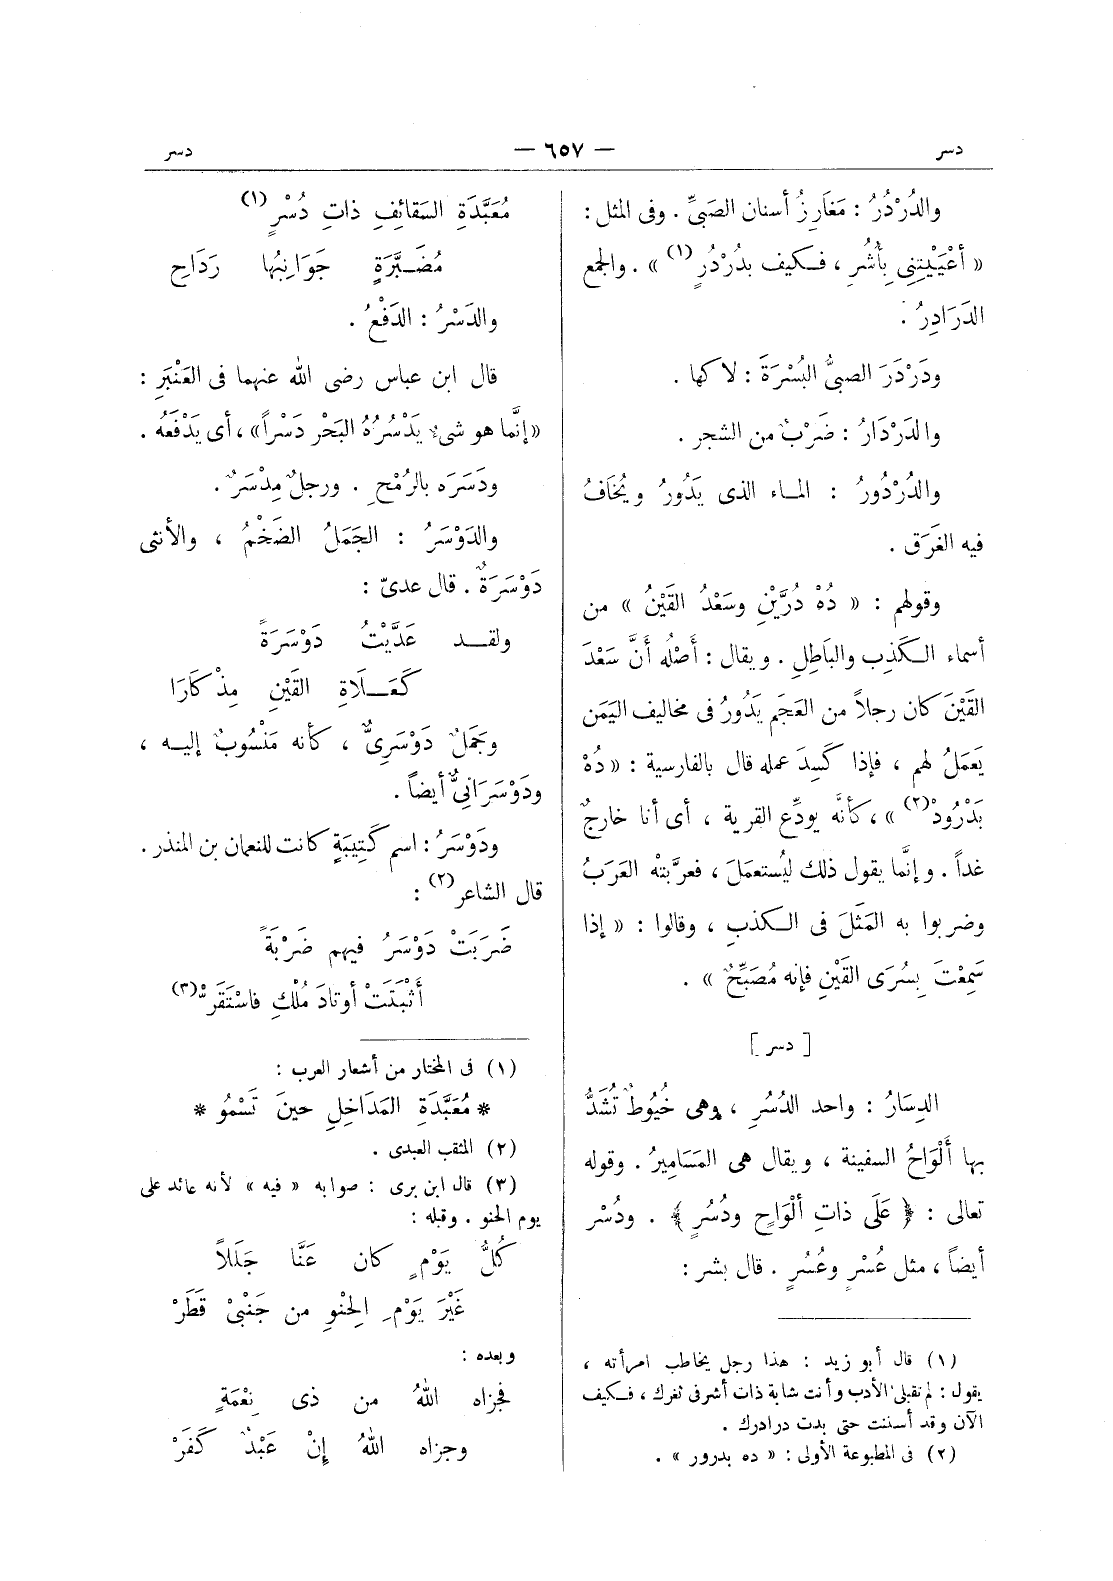 دسر — ٦٥٧ — دسر
والدُرْدُرُ : مَغَارِزُ أسنان الصَبىِّ . وفى المثل :
« أَعْيَيْتِنِى بِأُشُرٍ ، فكيف بدُرْدُرٍ (١) » . والجمع
الدَرَادِرُ .
ودَرْدَرَ الصبىُّ البُسْرَةَ : لاكها .
والدَرْدَارُ : ضَرْبٌ من الشجر .
والدُرْدُورُ : الماء الذى يَدُورُ ويُخَافُ
فيه الغَرَق .
وقولهم : « دُهْ دُرَّيْنِ وسَعْدُ القَيْنُ » من
أسماء الكَذِب والبَاطِلِ . ويقال : أَصْلُه أَنَّ سَعْدَ
القَيْنَ كان رجلاً من العَجَم يَدُورُ فى مخاليف اليَمَن
يَعمَلُ لهم ، فإذا كَسِدَ عمله قال بالفارسية : « دُهْ
بَدْرُودْ(٢) » ، كأنَّه يودِّع القرية ، أى أنا خارجٌ
غداً . وإنَّما يقول ذلك ليُستعمَلَ ، فعرَّبتْه العَرَبُ
وضربوا به المَثَلَ فى الكذبِ ، وقالوا : « إذا
سَمِعْتَ بِسُرَى القَيْنِ فإنه مُصَبِّحٌ » .
[ دسر ]
الدِسَارُ : واحد الدُسُرِ ، وهى خُيُوطٌ تُشَدُّ
بها أَلْوَاحُ السفينة ، ويقال هى المَسَامِيرُ . وقوله
تعالى : ﴿ عَلَى ذاتِ ألْوَاحٍ ودُسُرٍ ﴾ . ودُسْر
أيضاً ، مثل عُسْرٍ وعُسُرٍ . قال بشر :
(١) قال أبو زيد : هذا رجل يخاطب امرأته ،
يقول : لم تقبلى الأدب وأنت شابة ذات أشر فى ثغرك ، فكيف
الآن وقد أسننت حتى بدت درادرك .
(٢) فى المطبوعة الأولى : « ده بدرور » .
مُعَبَّدَةِ السَقَائِفِ ذاتِ دُسْرٍ (١)
مُضَبَّرَةٍ جَوَانِبُها رَدَاحِ
والدَسْرُ : الدَفْعُ .
قال ابن عباس رضى الله عنهما فى العَنْبَرِ :
« إنَّما هو شىء يَدْسُرُهُ البَحْر دَسْراً » ، أى يَدْفَعُه .
ودَسَرَه بالرُمْحِ . ورجلٌ مِدْسَرٌ .
والدَوْسَرُ : الجَمَلُ الضَخْمُ ، والأنثى
دَوْسَرَةٌ . قال عدىّ :
ولقد عَدَّيْتُ دَوْسَرَةً
كَعَلَاةِ القَيْنِ مِذْكَارَا
وجَمَلٌ دَوْسَرِىٌّ ، كأنه مَنْسُوبٌ إليه ،
ودَوْسَرَانِىٌّ أيضاً .
ودَوْسَرُ : اسم كَتِيبَةٍ كانت للنعمان بن المنذر .
قال الشاعر(٢) :
ضَرَبَتْ دَوْسَرُ فيهم ضَرْبَةً
أَثْبَتَتْ أوتادَ مُلْكٍ فاسْتَقَرّْ(٣)
(١) فى المختار من أشعار العرب :
* مُعَبَّدَةِ المَدَاخِلِ حينَ تَسْمُو *
(٢) المثقب العبدى .
(٣) قال ابن برى : صوابه « فيه » لأنه عائد على
يوم الحنو . وقبله :
كُلُّ يَوْمٍ كان عَنَّا جَلَلاً
غَيْرَ يَوْمِ الحِنْوِ من جَنْبَىْ قَطَرْ
وبعده :
فجزاه اللهُ من ذى نِعْمَةٍ
وجزاه اللهُ إنْ عَبْدٌ كَفَرْ